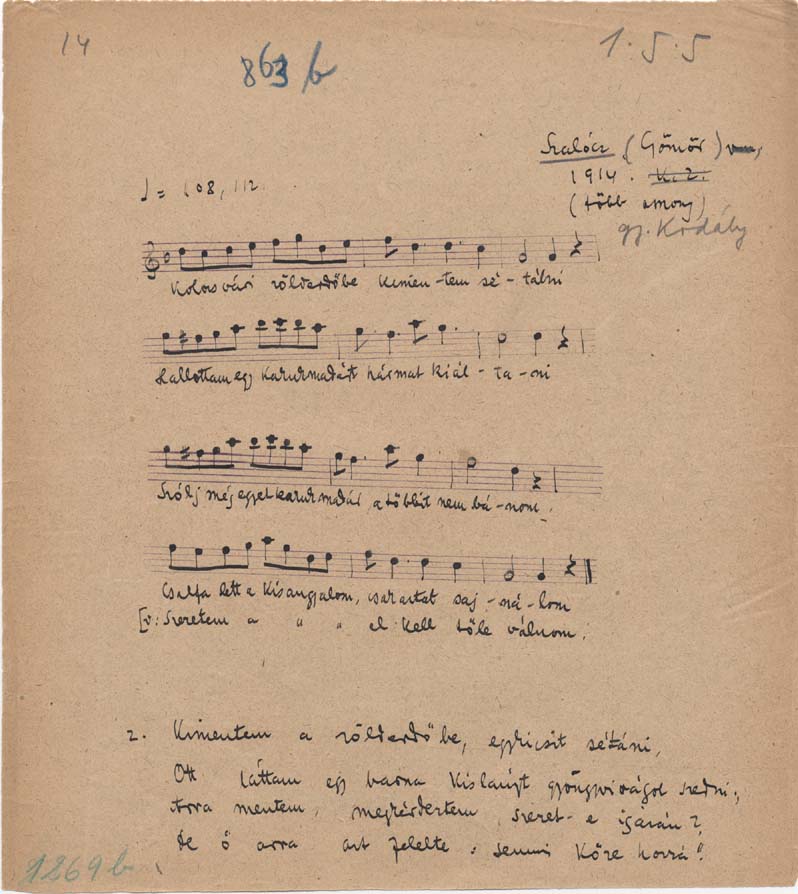 14
863 b
1.5.5
Szalócz (Gömör)
1914. K. Z.
(több asszony)
gy. Kodály
♩ = 108, 112.
Kolozsvári zölderdőbe kimen-tem sé-tálni
Hallottam egy kakukmadárt hármat kiál-ta-ni
Szólj még egyet kakukmadár a többit nem bá-nom.
Csalfa lett a kisangyalom, csak aztat saj-ná-lom
[v: Szeretem a " " el kell tőle válnom.
2. Kimentem a zölderdőbe, egykicsit sétáni,
Ott láttam egy barna kislányt gyöngyvirágot szedni;
Arra mentem, megkérdeztem szeret-e igazán?
De ő arra azt felelte: semmi köze hozzá".
1269 b